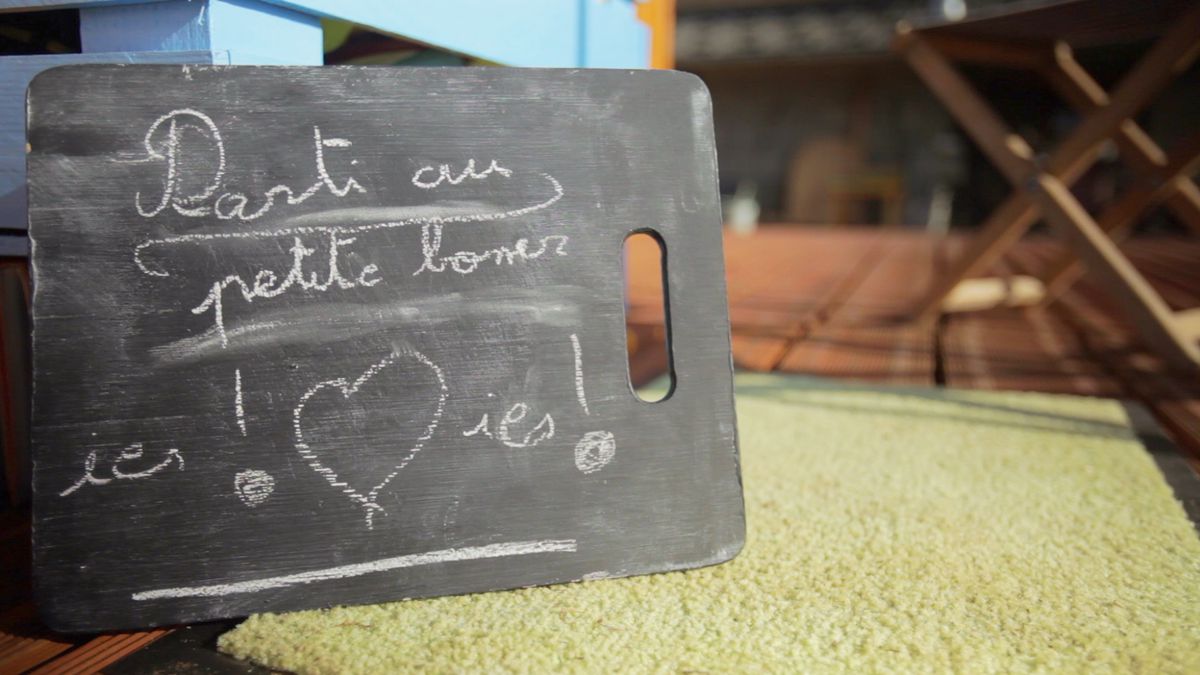 Parti au
petite bones
ies ! ies !